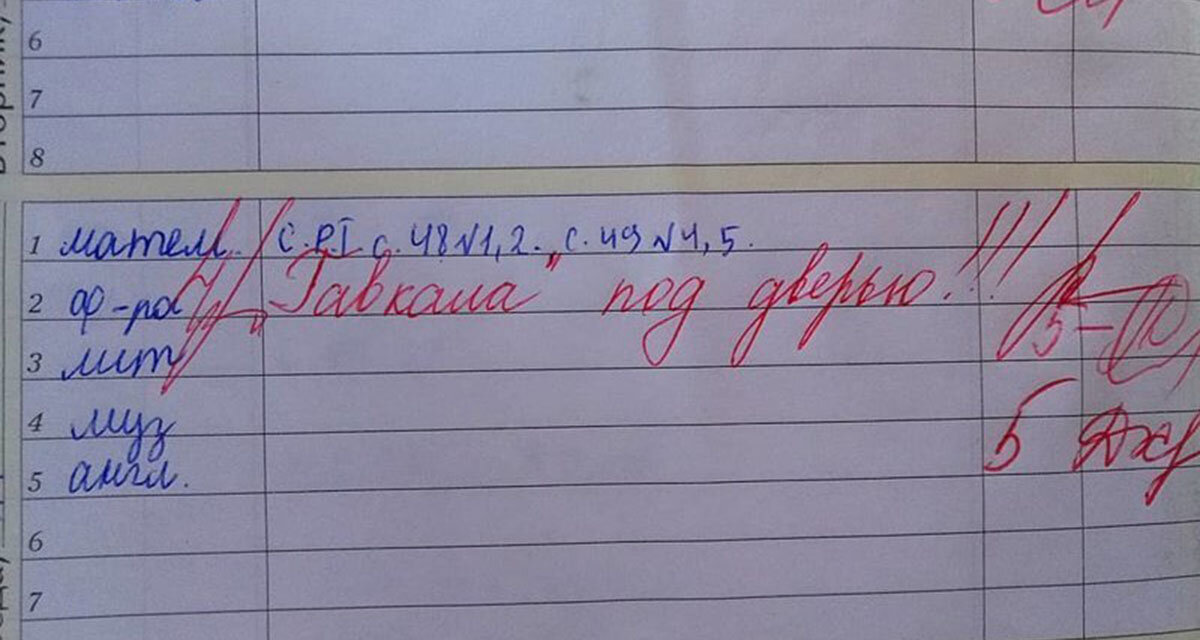 6
7
8
1 матем. С. РТ с. 48 №1, 2. с. 49 №4, 5.
2 ф-ра "Гавкала" под дверью!!!
5-
3 лит
4 муз 5
5 англ.
6
7